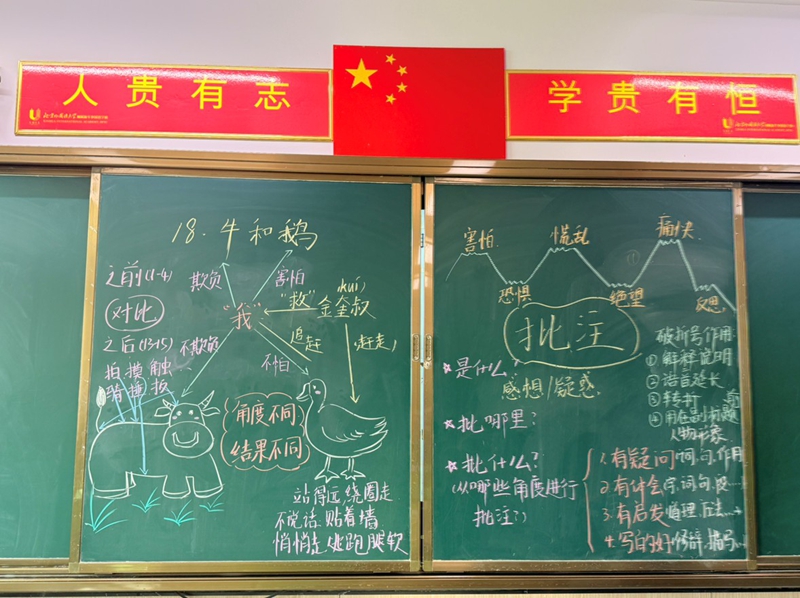 人贵有志
学贵有恒
18.牛和鹅
之前(1-4)
欺负
害怕
对比
"我"
"救"
(kuí)
金奎叔
之后(13-15)
不欺负
追赶
不怕
(赶走)
拍摸触
捶拔
角度不同
结果不同
站得远,绕圈走
不说话 贴着墙
悄悄走 逃跑 腿软
害怕
慌乱
痛快
恐惧
绝望
反思
批注
*是什么?
感想/疑惑
*批哪里?
*批什么?
(从哪些角度进行
批注?)
破折号作用
①解释说明
②话言延长
③转折
④用在副标题
人物形象
1.有疑问 词、句、作用
2.有体会 字、词、句、段…
3.有启发 道理、方法…
4.写的好 修辞、描写…